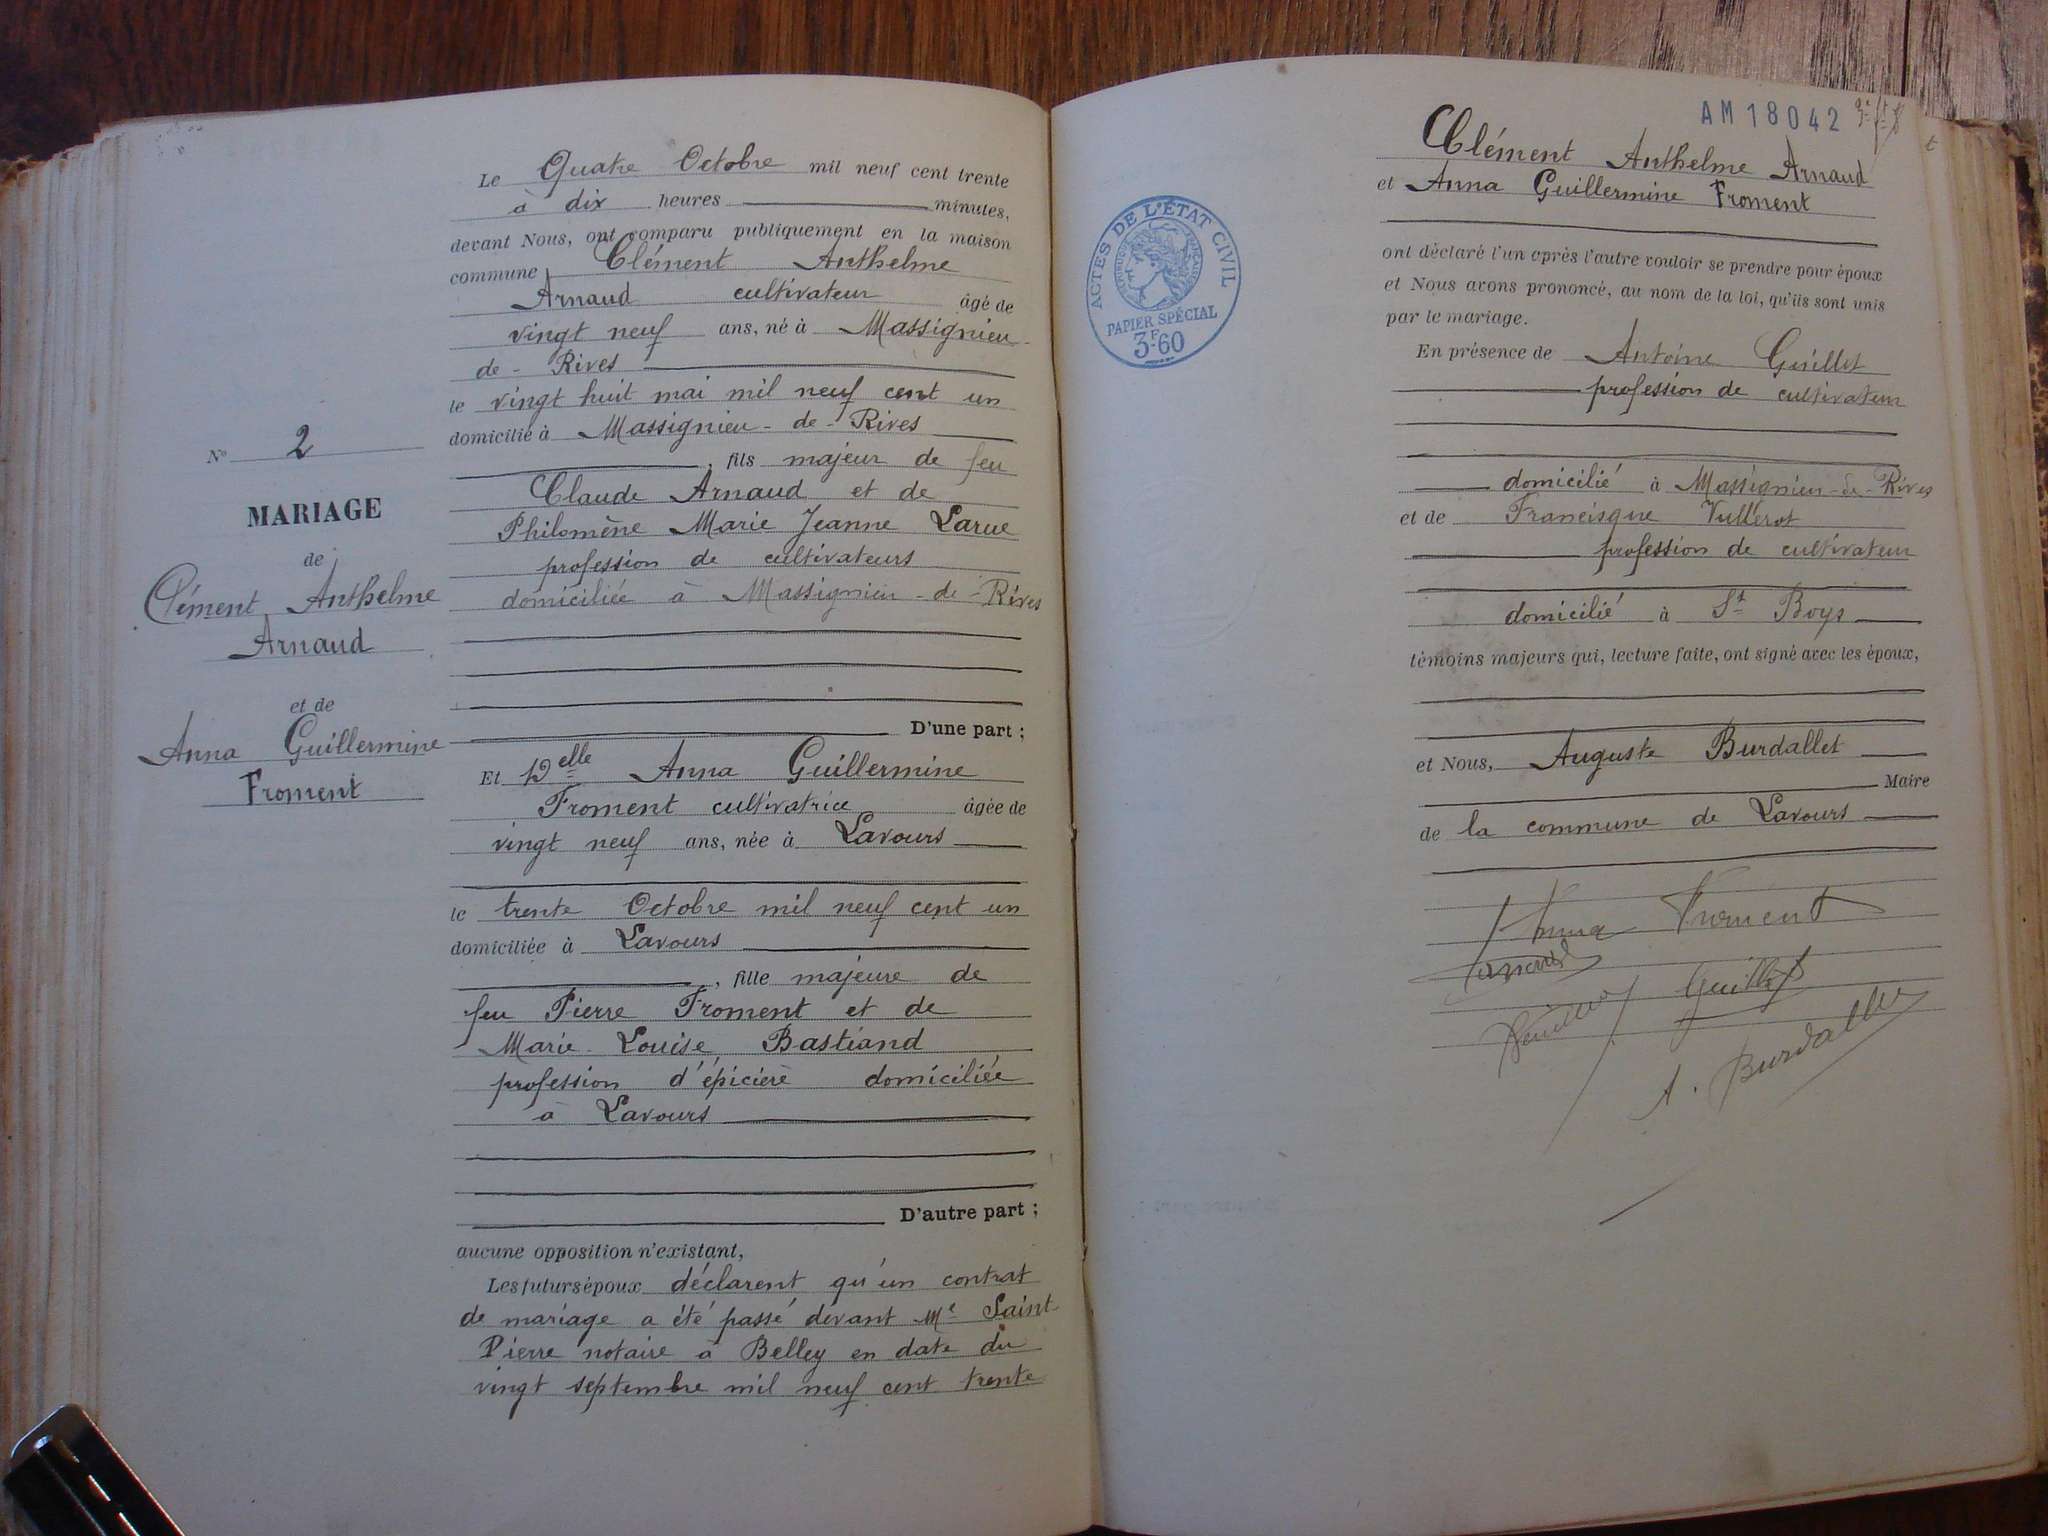 Le Quatre Octobre mil neuf cent trente
à dix heures minutes,
devant Nous, ont comparu publiquement en la maison
commune Clément Anthelme
Arnaud cultivateur âgé de
vingt neuf ans, né à Massignieu-
de-Rives
le vingt huit mai mil neuf cent un
domicilié à Massignieu-de-Rives
, fils majeur de feu
Claude Arnaud et de
Philomène Marie Jeanne Larue
profession de cultivateurs
domiciliée à Massignieu-de-Rives
D'une part ;
Et Delle Anna Guillermine
Froment cultivatrice âgée de
vingt neuf ans, née à Lavours
le trente Octobre mil neuf cent un
domiciliée à Lavours
, fille majeure de
feu Pierre Froment et de
Marie-Louise Bastiand
profession d'épicière domiciliée
à Lavours
D'autre part ;
aucune opposition n'existant,
Les futurs époux déclarent qu'un contrat
de mariage a été passé devant Me Saint-
Pierre notaire à Belley en date du
vingt septembre mil neuf cent trente
No 2
MARIAGE
de
Clément Anthelme
Arnaud
et de
Anna Guillermine
Froment
AM18042
Clément Anthelme Arnaud
et Anna Guillermine Froment
ACTES DE L'ÉTAT CIVIL
PAPIER SPÉCIAL
3F.60
ont déclaré l'un après l'autre vouloir se prendre pour époux
et Nous avons prononcé, au nom de la loi, qu'ils sont unis
par le mariage.
En présence de Antoine Guillot
profession de cultivateur
domicilié à Massignieu-de-Rives
et de Francisque Vullerot
profession de cultivateur
domicilié à St Boys
témoins majeurs qui, lecture faite, ont signé avec les époux,
et Nous, Auguste Burdallet
Maire
de la commune de Lavours
Anna Froment
Arnaud
Guillot
A. Burdallet